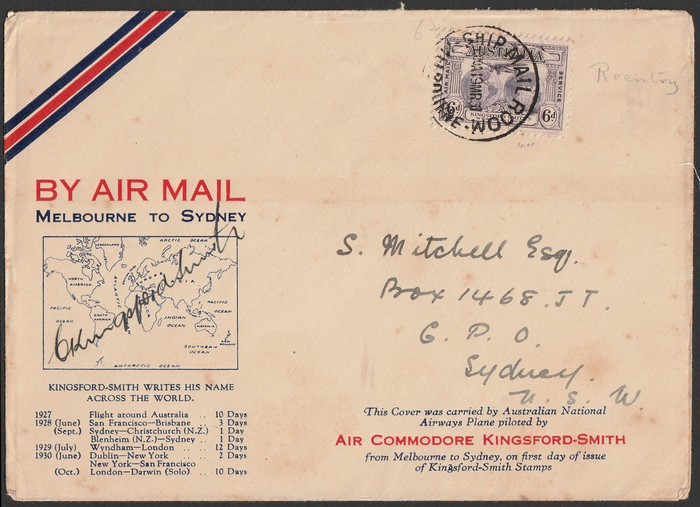 Reentry
SHIP MAIL ROOM
MELBOURNE
19MR31
AUSTRALIA
AIR MAIL
SERVICE
6d 6d
BY AIR MAIL
MELBOURNE TO SYDNEY
ARCTIC OCEAN
GREENLAND
NORTH AMERICA
EUROPE
ASIA
ATLANTIC
PACIFIC OCEAN
PACIFIC OCEAN
AFRICA
INDIAN OCEAN
AUSTRALIA
SOUTHERN OCEAN
ANTARCTIC OCEAN
CKingsford Smith
S. Mitchell Esq.
Box 1468 JT.
G. P. O.
Sydney.
N. S. W.
KINGSFORD-SMITH WRITES HIS NAME
ACROSS THE WORLD.
1927 Flight around Australia .. 10 Days
1928 (June) San Francisco—Brisbane .. 3 Days
(Sept.) Sydney—Christchurch (N.Z.) 1 Day
Blenheim (N.Z.)—Sydney .. 1 Day
1929 (July) Wyndham—London .. 12 Days
1930 (June) Dublin—New York .. 2 Days
New York—San Francisco
(Oct.) London—Darwin (Solo) .. 10 Days
This Cover was carried by Australian National
Airways Plane piloted by
AIR COMMODORE KINGSFORD-SMITH
from Melbourne to Sydney, on first day of issue
of Kingsford-Smith Stamps